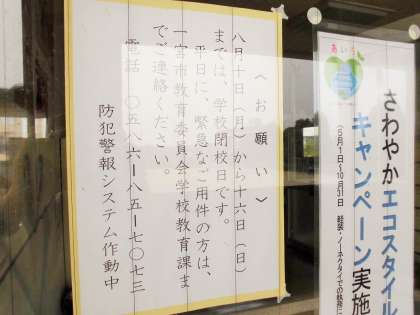 〈お願い〉
八月十日（月）から十六日（日）
までは、学校閉校日です。
平日に、緊急なご用件の方は、
一宮市教育委員会学校教育課ま
でご連絡ください。
電話 〇五八六ー八五ー七〇七三
防犯警報システム作動中
あいち
さわやかエコスタイル
キャンペーン実施
（5月1日～10月31日）
軽装・ノーネクタイでの執務に